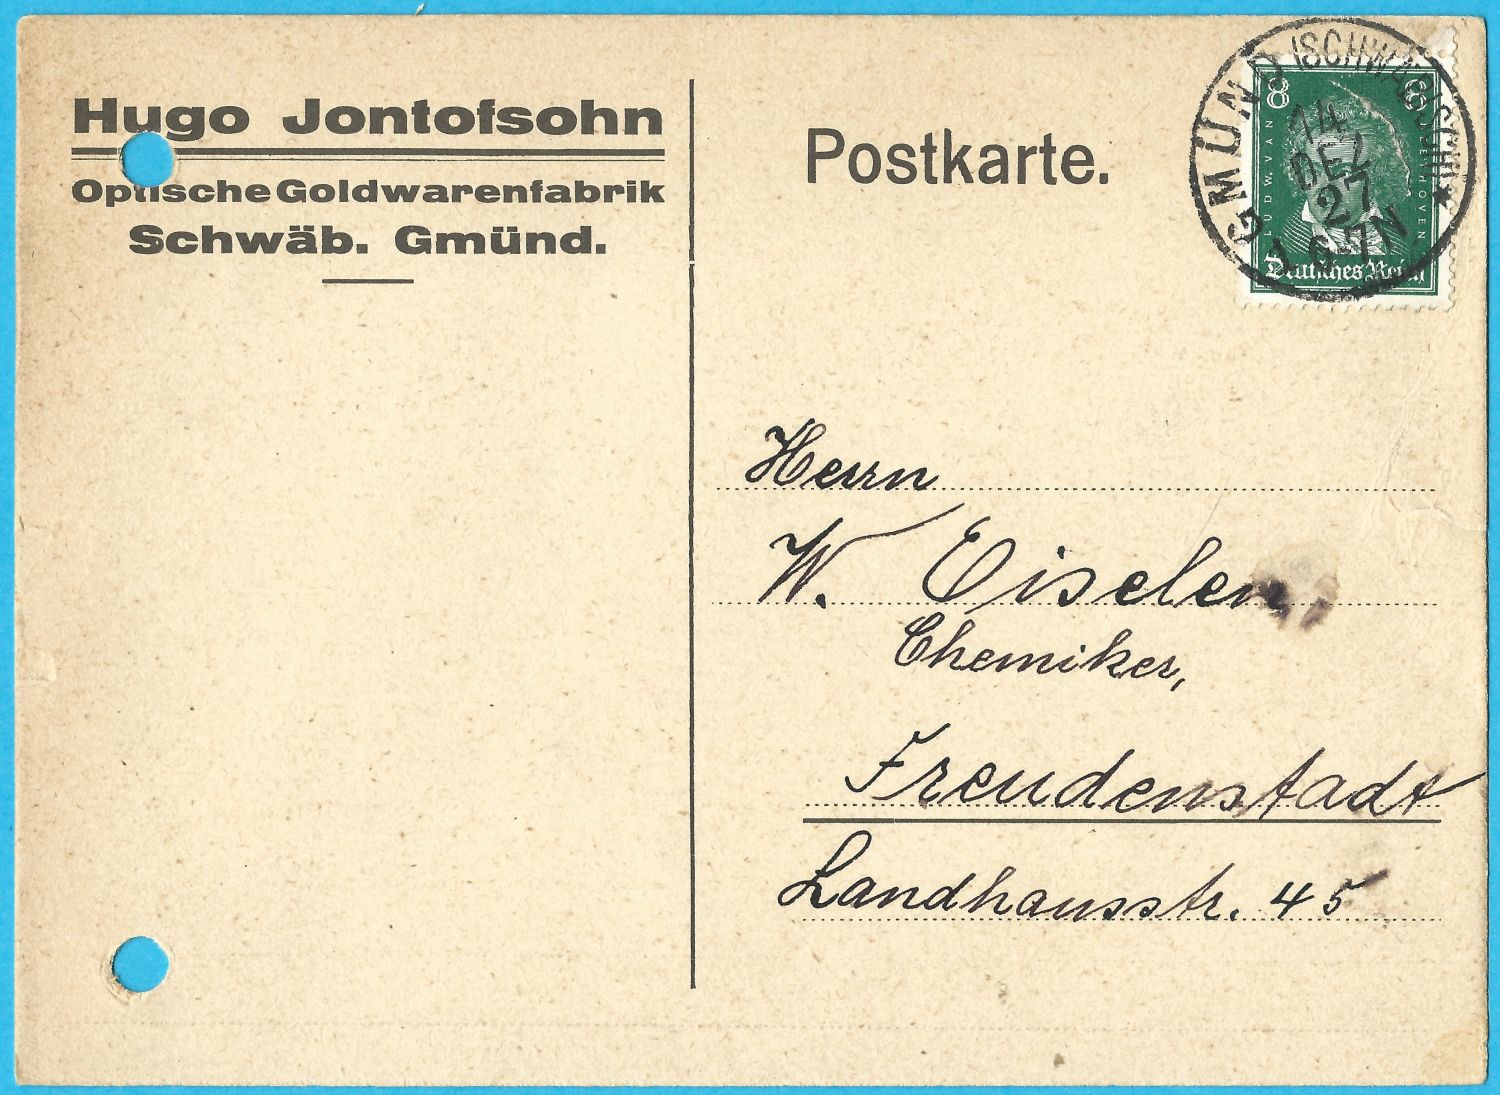 Hugo Jontofsohn
Optische Goldwarenfabrik
Schwäb. Gmünd.
Postkarte.
GMÜND (SCHWÄBISCH) *
14
DEZ
27
6-7N
8 8
LUDW. VAN
BEETHOVEN
Deutsches Reich
Herrn
W. Eiselen,
Chemiker,
Freudenstadt
Landhausstr. 45